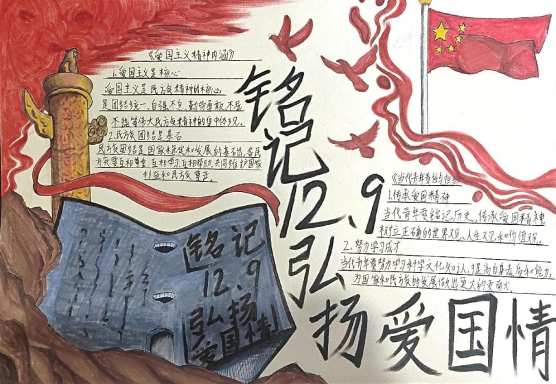 《爱国主义精神内涵》
1.爱国主义是核心
爱国主义是民族精神的核心,
是团结统一、自强不息
不能等伟大民族精神的集中体现。
2.民族团结是基石
民族团结是国家稳定和发展的基石,各民
族要互相尊重、互相学习、互相帮助,共同维护国家
利益和民族尊严。
铭记
12.9
弘扬
爱国情
铭记
12.9
弘扬
爱国情
1.传承爱国精神
当代青年要铭记历史,传承爱国精神
树立正确的世界观、人生观和价值观。
2.努力学习成才
当代青年要努力学习科学文化知识,提高自身素质和能力,
为国家和民族的发展做出更大的贡献